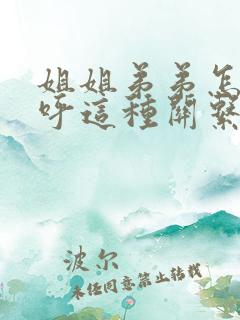 姐姐弟弟怎
呼這種關繫
波尔
未经同意禁止转载